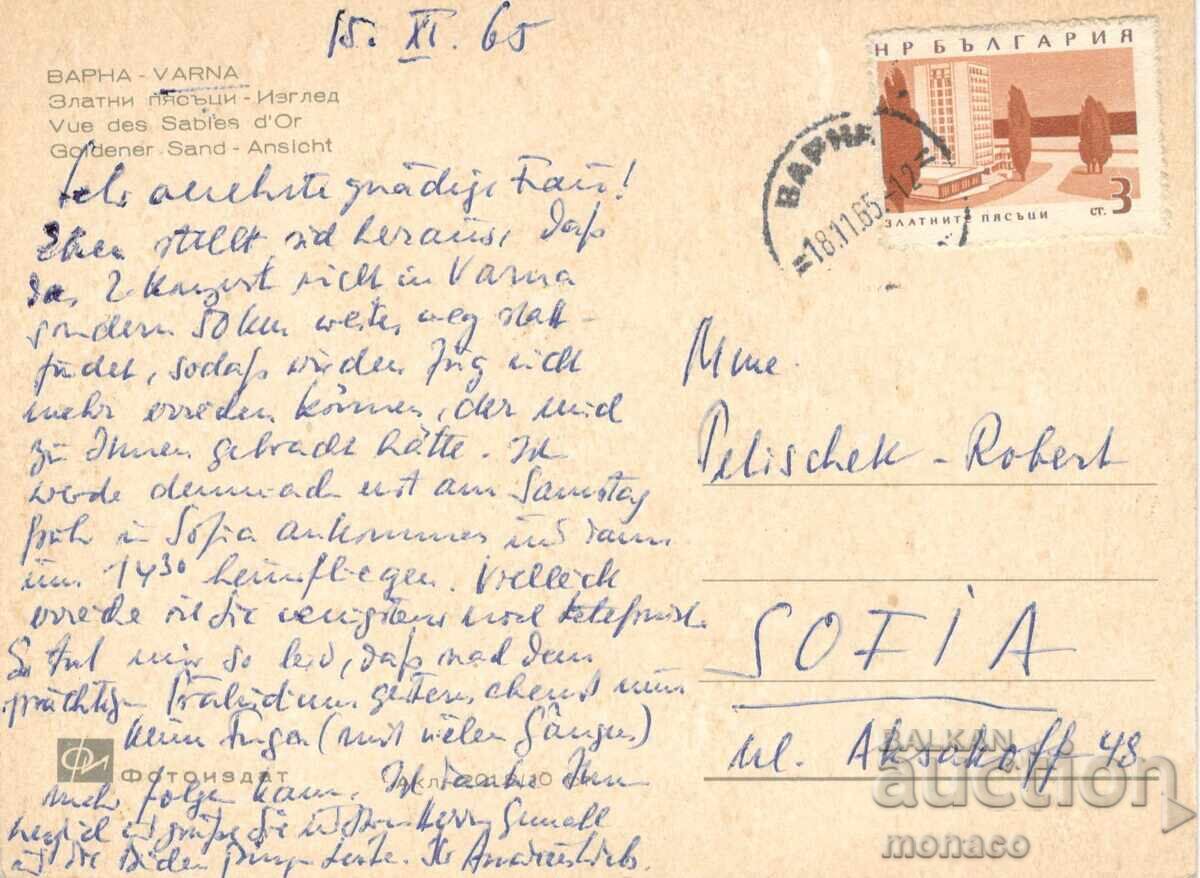 15. XI. 65
ВАРНА - VARNA
Златни пясъци - Изглед
Vue des Sables d'Or
Goldener Sand - Ansicht
Sehr verehrte gnädige Frau!
Eben stellt sich heraus, daß
das 2. Konzert nicht in Varna
sondern 50 km weiter weg statt-
findet, sodaß wir den Zug nicht
mehr erreichen können, der mich
zu Ihnen gebracht hätte. Ich
werde demnach erst am Samstag
früh in Sofia ankommen und dann
um 14 30 heimfliegen. Vielleicht
erreiche ich Sie wenigstens noch telefonisch.
Es tut mir so leid, daß nach dem
prächtigen Präludium gestern abend nun
keine Fuge (mit vielen Gängen)
mehr folgen kann. Ich danke Ihnen
herzlich und grüße Sie und Ihren Herrn Gemahl
und die beiden jungen Leute. Ihr
НР БЪЛГАРИЯ
ЗЛАТНИТЕ ПЯСЪЦИ
СТ. 3
ВАРНА
18.11.65.-12
Mme.
Pelischek - Robert
SOFIA
ul. Aksakoff 48
Фотоиздат
BALKAN
auction
monaco